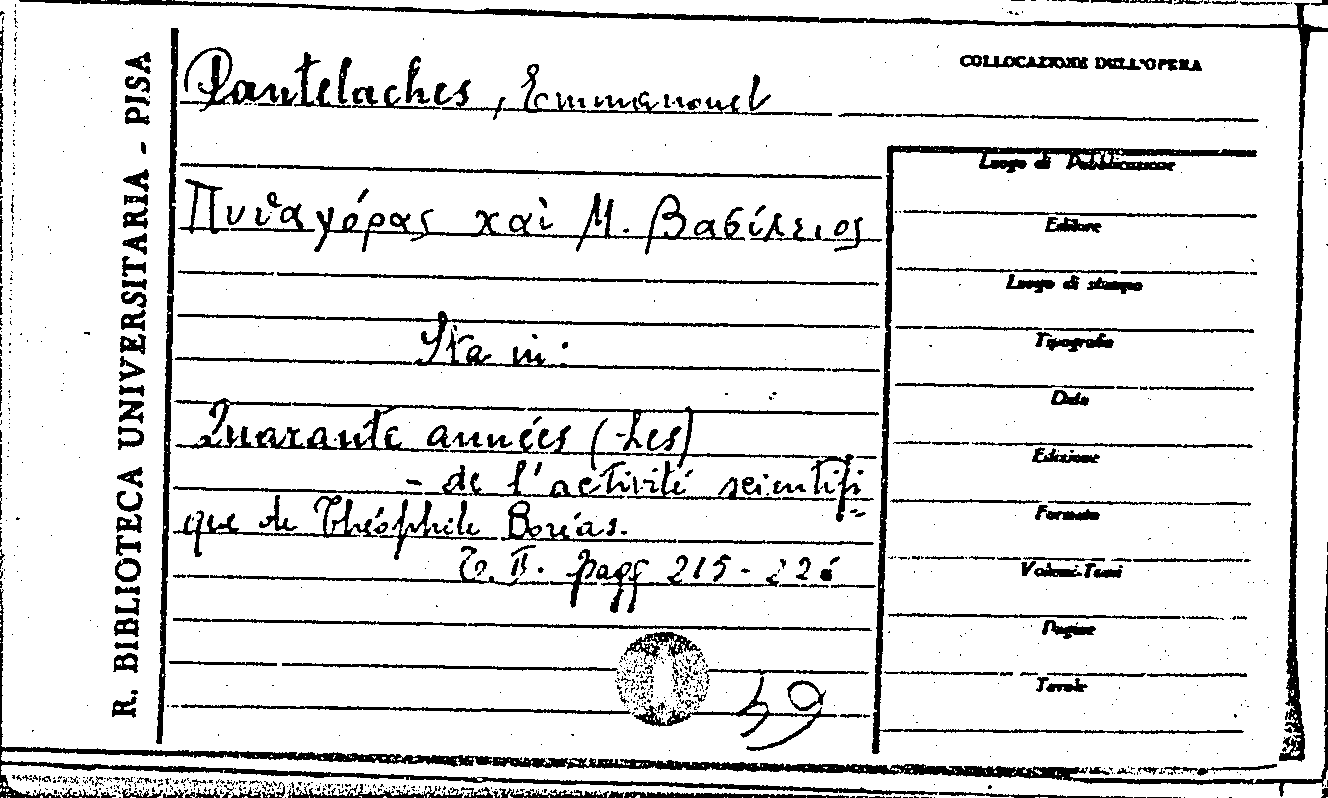 R. BIBLIOTECA UNIVERSITARIA - PISA
COLLOCAZIONE DELL'OPERA
Pantelaches, Emmanouel
Πυθαγόρας καὶ Μ. Βασίλειος
Sta in:
Quarante années (Les)
- de l'activité scientifi=
que de Théophile Boréas.
T. II. pagg 215-22
39
Luogo di Pubblicazione
Editore
Luogo di stampa
Tipografia
Data
Edizione
Formato
Volumi-Tomi
Pagine
Tavole